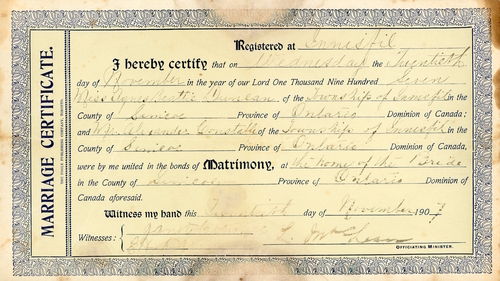 MARRIAGE CERTIFICATE.
Registered at Innisfil
I hereby certify that on Wednesday the Twentieth
day of November in the year of our Lord One Thousand Nine Hundred Seven
Miss Agnes Duncan of the Township of Innisfil in the
County of Simcoe Province of Ontario Dominion of Canada;
and Mr Alexander Constable of the Township of Innisfil in the
County of Simcoe Province of Ontario Dominion of Canada,
were by me united in the bonds of Matrimony, at the home of the Bride
in the County of Simcoe Province of Ontario Dominion of
Canada aforesaid.
Witness my hand this Twentieth day of November 1907
Witnesses:
OFFICIATING MINISTER.